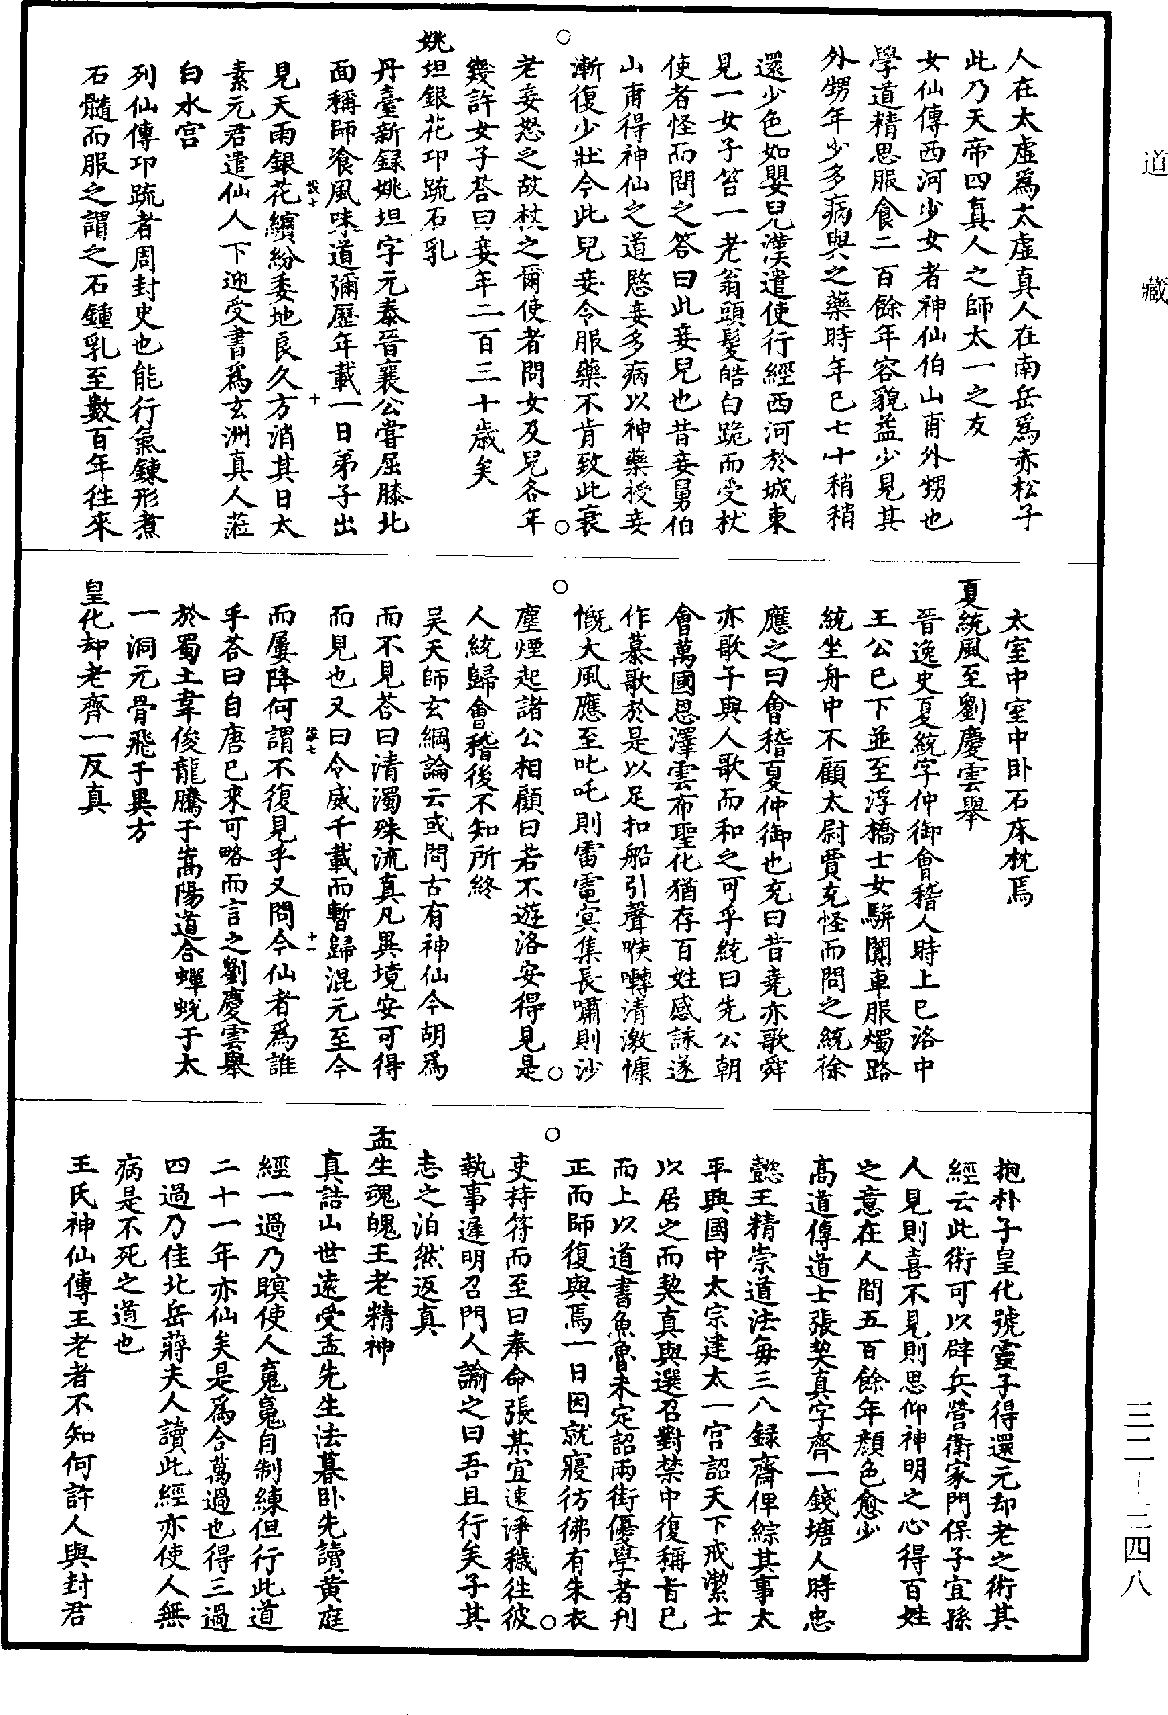 道藏
人在太虛爲太虛真人在南岳爲赤松子
此乃天帝四真人之師太一之友
女仙傳西河少女者神仙伯山甫外甥也
學道精思服食二百餘年容貌益少見其
外甥年少多病與之藥時年已七十稍稍
還少色如嬰兒漢遣使行經西河於城東
見一女子笞一老翁頭髮皓白跪而受杖
使者怪而問之答曰此妾兒也昔妾舅伯
山甫得神仙之道愍妾多病以神藥授妾
漸復少壯今此兒妾令服藥不肯致此衰
老妾怒之故杖之爾使者問女及兒各年
幾許女子荅曰妾年二百三十歲矣
姚坦銀花卭疏石乳
丹臺新錄姚坦字元泰晉襄公嘗屈膝北
面稱師飡風味道彌歷年載一日弟子出
見天雨銀花繽紛委地良久方消其日太
素元君遣仙人下迎受書爲玄洲真人莅
白水宮
列仙傳卭疏者周封史也能行氣鍊形煮
石髓而服之謂之石鍾乳至數百年往來
太室中室中卧石床枕焉
夏統風至劉慶雲舉
晉逸史夏統字仲御會稽人時上巳洛中
王公已下並至浮橋士女駢闐車服燭路
統坐舟中不顧太尉賈充怪而問之統徐
應之曰會稽夏仲御也充曰昔堯亦歌舜
亦歌子與人歌而和之可乎統曰先公朝
會萬國恩澤雲布聖化猶存百姓感詠遂
作慕歌於是以足扣船引聲喉囀清激慷
慨大風應至叱吒則雷電冥集長嘯則沙
塵煙起諸公相顧曰若不遊洛安得見是
人統歸會稽後不知所終
吴天師玄綱論云或問古有神仙今胡爲
而不見荅曰清濁殊流真凡異境安可得
而見也又曰令威千載而暫歸混元至今
而屢降何謂不復見乎又問今仙者爲誰
乎荅曰自唐已來可略而言之劉慶雲舉
於蜀土韋俊龍騰于嵩陽道合蟬蛻于太
一洞元骨飛于異方
皇化却老齊一反真
抱朴子皇化號靈子得還元却老之術其
經云此術可以辟兵營衛家門保子宜孫
人見則喜不見則思仰神明之心得百姓
之意在人間五百餘年顔色愈少
高道傳道士張契真字齊一錢塘人時忠
懿王精崇道法每三八錄齋俾綜其事太
平興國中太宗建太一宮詔天下戒潔士
以居之而契真與選召對禁中復稱旨已
而上以道書魚魯未定詔兩街優學者刋
正而師復與焉一日因就寢彷彿有朱衣
吏持符而至曰奉命張某宜速淨穢往彼
執事遲明召門人諭之曰吾且行矣子其
志之泊然返真
孟生魂魄王老精神
真誥山世遠受孟先生法暮卧先讀黃庭
經一過乃瞑使人䰟䰟自制練但行此道
二十一年亦仙矣是爲合萬過也得三過
四過乃佳北岳蔣夫人讀此經亦使人無
病是不死之道也
王氏神仙傳王老者不知何許人與封君
三二－三四八